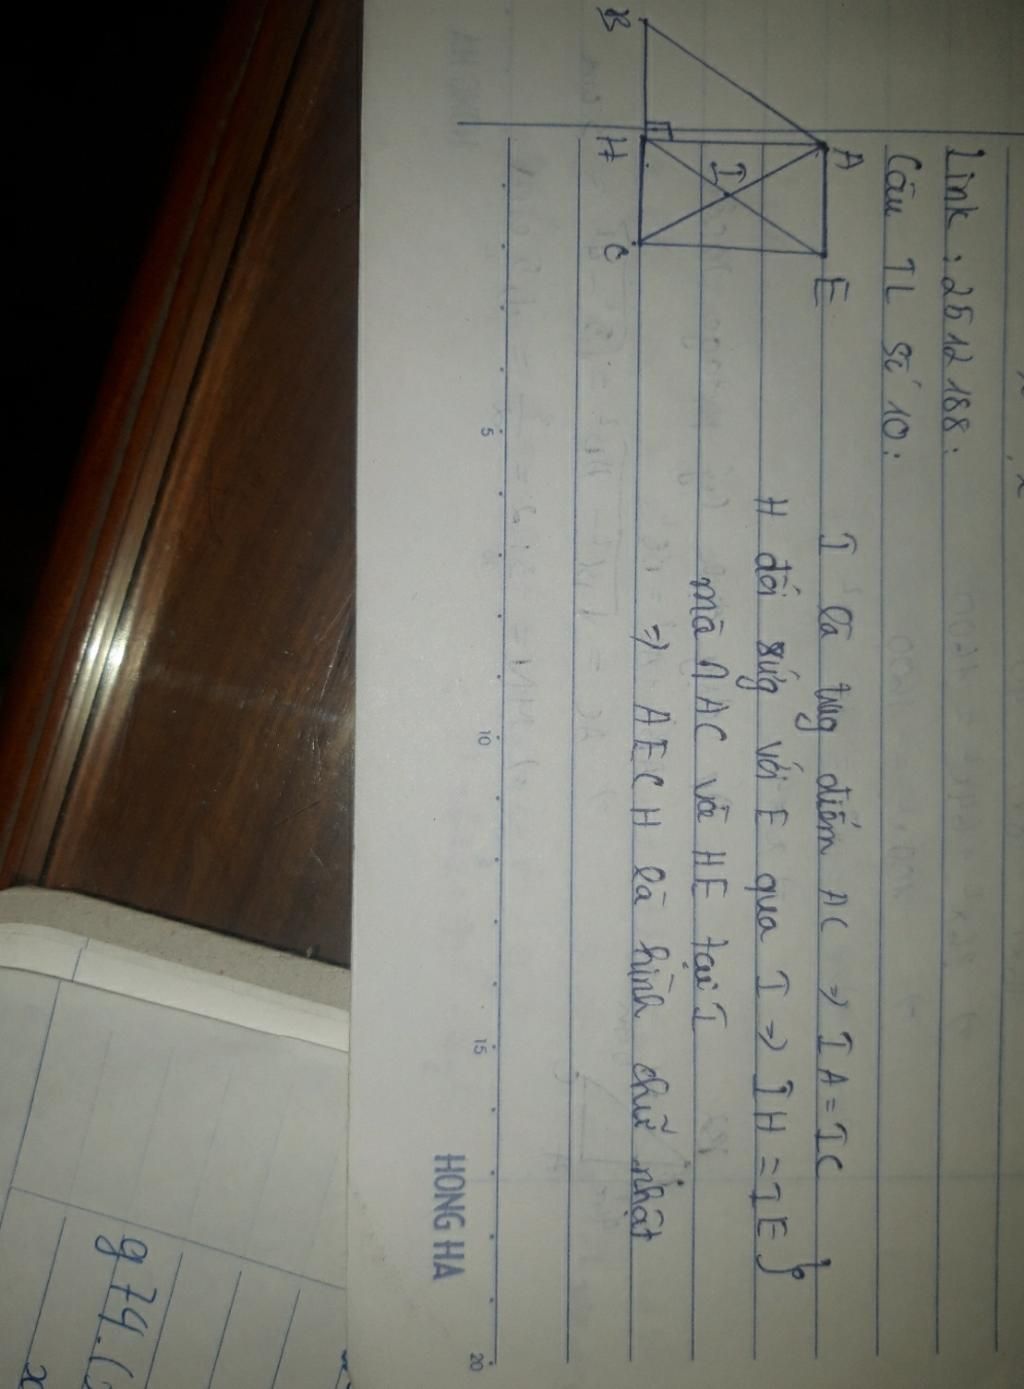 Link : 2512188.
Câu TL số 10.
A
E
I
B
H
C
I là tug điểm AC => IA = IC
H đối xứg với E qua I => IH = IE }
mà ∩ AC và HE tại I
=> AECH là hình chữ nhật
5
10
15
20
HONG HA
g 74.(
x